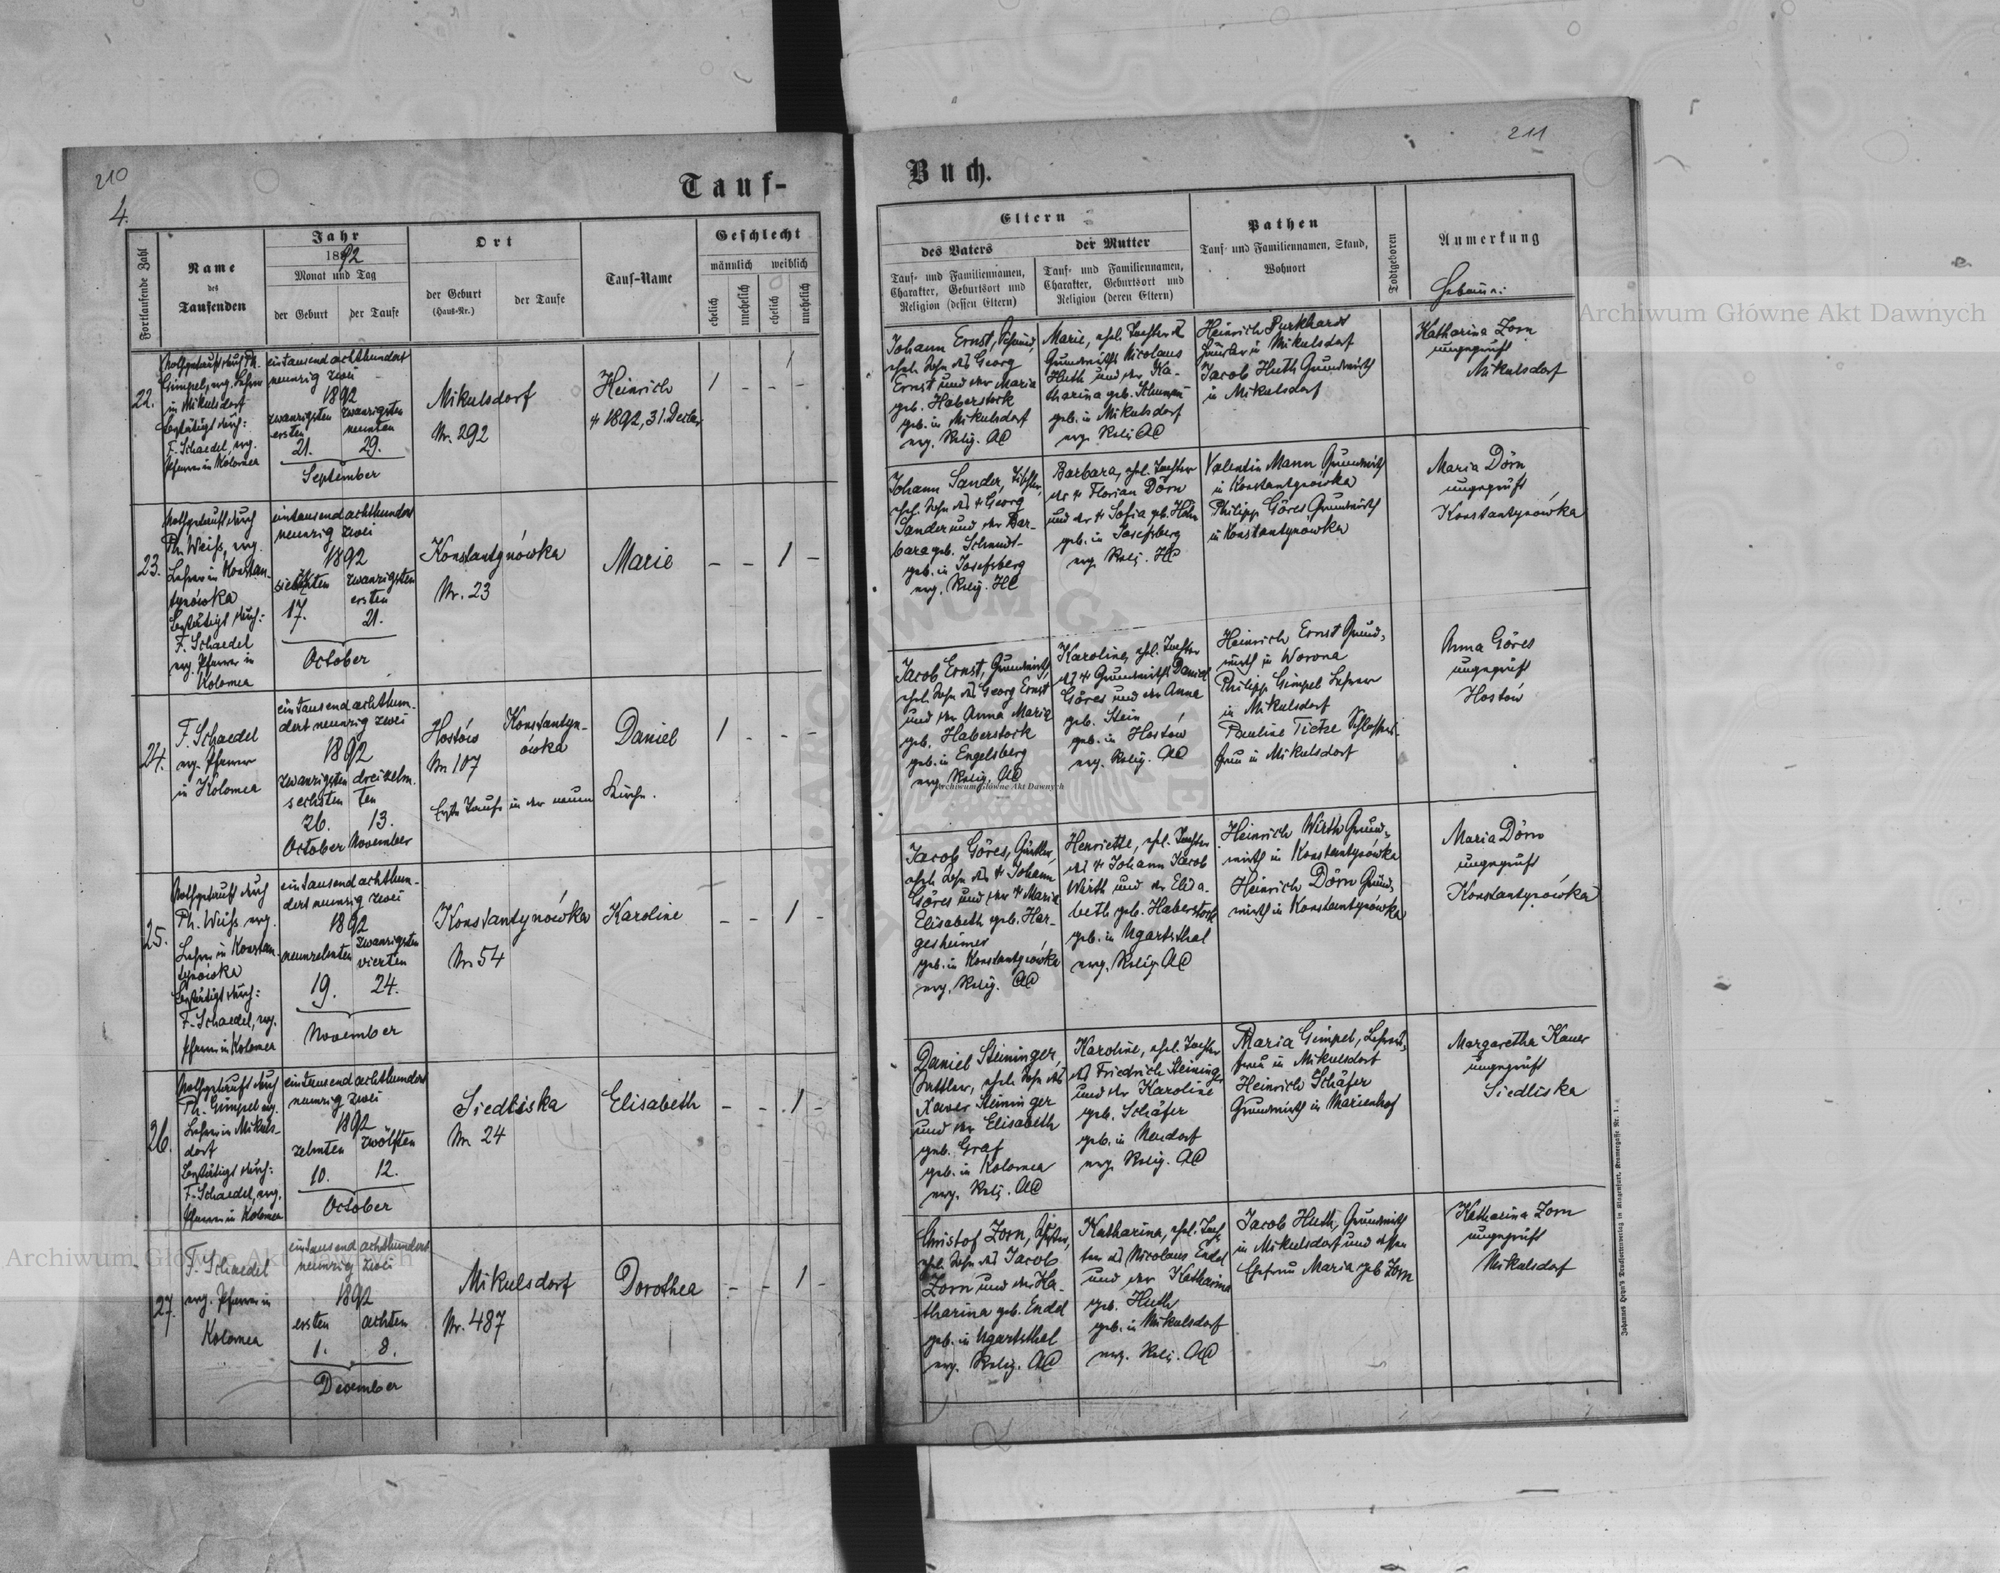 210
211
4.
Tauf-
Buch.
Fortlaufende Zahl
Name
des
Taufenden
Jahr
1892
Monat und Tag
der Geburt
der Taufe
Ort
der Geburt
(Haus-Nr.)
der Taufe
Tauf-Name
Geschlecht
männlich
weiblich
ehelich
unehelich
ehelich
unehelich
Eltern
des Vaters
der Mutter
Tauf- und Familiennamen,
Charakter, Geburtsort und
Religion (dessen Eltern)
Tauf- und Familiennamen,
Charakter, Geburtsort und
Religion (deren Eltern)
Pathen
Tauf- und Familiennamen, Stand,
Wohnort
Todtgeboren
Anmerkung
22.
Nothgetauft durch Ph.
Gimpel, evg. Lehrer
in Mikulsdorf
Bestätigt durch:
F. Schaedel, evg.
Pfarrer in Kolomea
eintausendachthundert
neunzig zwei
1892
zwanzigsten
ersten
21.
zwanzigsten
neunten
29.
September
Mikulsdorf
Nr. 292
Heinrich
† 1892, 31. Decbr
1 - - -
Johann Ernst, Schmied,
ehel. Sohn des Georg
Ernst und der Maria
geb. Haberstock
geb. in Mikulsdorf
evg. Relig. AC
Marie, ehel. Tochter d.
Grundwirths Nicolaus
Huth und der Ka-
tharina geb.
geb. in Mikulsdorf
evg. Relig AC
Heinrich Burkhardt
Häusler in Mikulsdorf
Jacob Huth Grundwirth
in Mikulsdorf
Katharina Zorn
ungeprüft
Mikulsdorf
23.
Nothgetauft durch
Ph. Weiss, evg.
Lehrer in Konstan-
tynówka
Bestätigt durch:
F. Schaedel
evg. Pfarrer in
Kolomea
eintausendachthundert
neunzig zwei
1892
siebzehnten
17.
zwanzigsten
ersten
21.
October
Konstantynówka
Nr. 23
Marie
- - 1 -
Johann Sander, Tischler,
ehel. Sohn des † Georg
Sander und der Bar-
bara geb. Schmidt
geb. in Josefsberg
evg. Relig. HC
Barbara, ehel. Tochter
des † Florian Dörn
und der † Sofia geb.
geb. in Josefsberg
evg. Relig. HC
Valentin Mann Grundwirth
in Konstantynówka
Philipp Göres Grundwirth
in Konstantynówka
Maria Dörn
ungeprüft
Konstantynówka
24.
F. Schaedel
evg. Pfarrer
in Kolomea
eintausendachthun-
dert neunzig zwei
1892
zwanzigsten
sechsten
26.
October
dreizehn-
ten
13.
November
Hostów
Nr. 107
Konstantyn-
ówka
Erste Taufe in der neuen Kirche.
Daniel
1 - - -
Jacob Ernst, Grundwirth,
ehel. Sohn des Georg Ernst
und der Anna Maria
geb. Haberstock
geb. in Engelsberg
evg. Relig. AC
Karoline, ehel. Tochter
des † Grundwirths Daniel
Göres und der Anna
geb. Stein
geb. in Hostów
evg. Relig. AC
Heinrich Ernst Grund-
wirth in Worona
Philipp Gimpel Lehrer
in Mikulsdorf
Pauline Tietze Schlossers-
frau in Mikulsdorf
Anna Göres
ungeprüft
Hostów
25.
Nothgetauft durch
Ph. Weiss evg.
Lehrer in Konstan-
tynówka
Bestätigt durch:
F. Schaedel, evg.
Pfarrer in Kolomea
eintausendachthun-
dert neunzig zwei
1892
neunzehnten
19.
zwanzigsten
vierten
24.
November
Konstantynówka
Nr. 54
Karoline
- - 1 -
Jacob Göres,
ehel. Sohn des † Johann
Göres und der † Maria
Elisabeth geb. Har-
gesheimer
geb. in Konstantynówka
evg. Relig. AC
Henriette, ehel. Tochter
des † Johann Jacob
Wirth und der Elisa-
beth geb. Haberstock
geb. in Ugartsthal
evg. Relig AC
Heinrich Wirth Grund-
wirth in Konstantynówka
Heinrich Dörn Grund-
wirth in Konstantynówka
Maria Dörn
ungeprüft
Konstantynówka
26.
Nothgetauft durch
Ph. Gimpel evg.
Lehrer in Mikuls-
dorf
Bestätigt durch:
F. Schaedel, evg.
Pfarrer in Kolomea
eintausendachthundert
neunzig zwei
1892
zehnten
10.
zwölften
12.
October
Siedliska
Nr. 24
Elisabeth
- - 1 -
Daniel Steininger,
Sattler, ehel. Sohn des
Xaver Steininger
und der Elisabeth
geb. Graf
geb. in Kolomea
evg. Relig. AC
Karoline, ehel. Tochter
des Friedrich Steininger
und der Karoline
geb. Schäfer
geb. in Neudorf
evg. Relig. AC
Maria Gimpel, Lehrers-
frau in Mikulsdorf
Heinrich Schäfer
Grundwirth in Marienhof
Margaretha Kauer
ungeprüft
Siedliska
27.
F. Schaedel
evg. Pfarrer in
Kolomea
eintausend achthundert
neunzig zwei
1892
ersten
1.
achten
8.
December
Mikulsdorf
Nr. 487
Dorothea
- - 1 -
Christof Zorn,
ehel. Sohn des Jacob
Zorn und der Ka-
tharina geb. Endel
geb. in Ugartsthal
evg. Relig. AC
Katharina, ehel. Toch-
ter des Nicolaus Endel
und der Katharina
geb. Huth
geb. in Mikulsdorf
evg. Relig. AC
Jacob Huth, Grundwirth
in Mikulsdorf und dessen
Ehefrau Maria geb Zorn
Katharina Zorn
ungeprüft
Mikulsdorf
Archiwum Główne Akt Dawnych
Archiwum Główne Akt Dawnych
Archiwum Główne Akt Dawnych